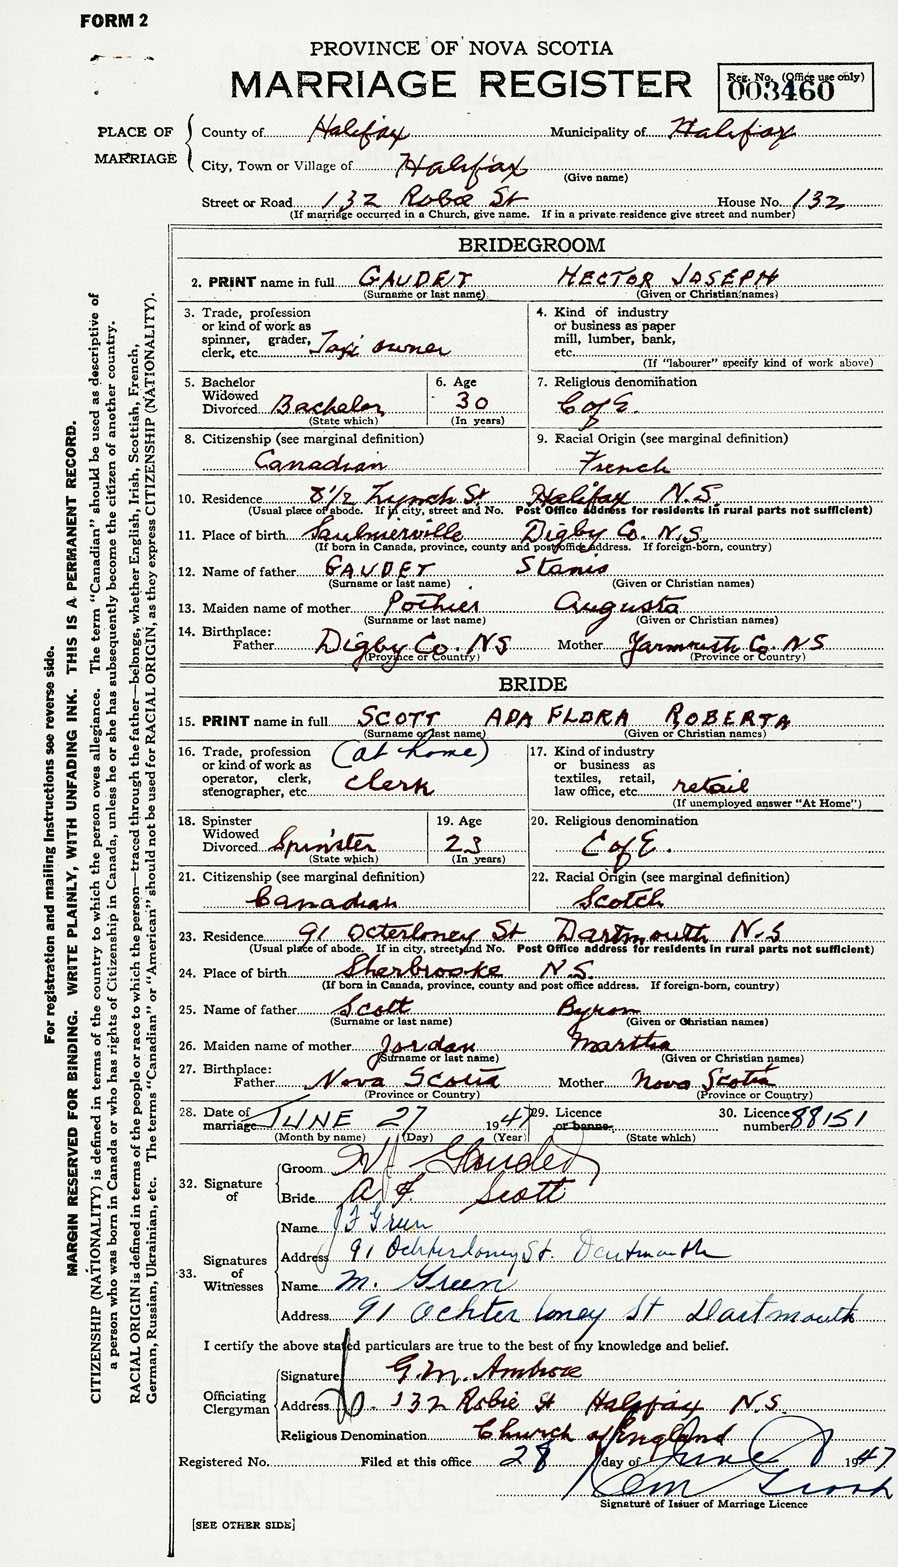 FORM 2
PROVINCE OF NOVA SCOTIA
MARRIAGE REGISTER
Reg. No. (Office use only)
003460
PLACE OF MARRIAGE
County of Halifax Municipality of Halifax
City, Town or Village of Halifax
(Give name)
Street or Road 132 Robie St House No. 132
(If marriage occurred in a Church, give name. If in a private residence give street and number)
BRIDEGROOM
2. PRINT name in full GAUDET HECTOR JOSEPH
(Surname or last name) (Given or Christian names)
3. Trade, profession or kind of work as spinner, grader, clerk, etc. Taxi owner
4. Kind of industry or business as paper mill, lumber, bank, etc.
(If "labourer" specify kind of work above)
5. Bachelor Widowed Divorced Bachelor
(State which)
6. Age 30
(In years)
7. Religious denomination
C of E.
8. Citizenship (see marginal definition)
Canadian
9. Racial Origin (see marginal definition)
French
10. Residence 8 1/2 Lynch St Halifax N.S.
(Usual place of abode. If in city, street and No. Post Office address for residents in rural parts not sufficient)
11. Place of birth Saulnierville Digby Co. N.S.
(If born in Canada, province, county and post office address. If foreign-born, country)
12. Name of father GAUDET Stanis
(Surname or last name) (Given or Christian names)
13. Maiden name of mother Pothier Augusta
(Surname or last name) (Given or Christian names)
14. Birthplace:
Father Digby Co. NS Mother Yarmouth Co. NS
(Province or Country) (Province or Country)
BRIDE
15. PRINT name in full SCOTT ADA FLORA ROBERTA
(Surname or last name) (Given or Christian names)
16. Trade, profession or kind of work as operator, clerk, stenographer, etc. (at home) clerk
17. Kind of industry or business as textiles, retail, law office, etc. retail
(If unemployed answer "At Home")
18. Spinster Widowed Divorced Spinster
(State which)
19. Age 23
(In years)
20. Religious denomination
C of E.
21. Citizenship (see marginal definition)
Canadian
22. Racial Origin (see marginal definition)
Scotch
23. Residence 91 Octerloney St Dartmouth N.S
(Usual place of abode. If in city, street and No. Post Office address for residents in rural parts not sufficient)
24. Place of birth Sherbrooke N.S.
(If born in Canada, province, county and post office address. If foreign-born, country)
25. Name of father Scott Byron
(Surname or last name) (Given or Christian names)
26. Maiden name of mother Jordan Martha
(Surname or last name) (Given or Christian names)
27. Birthplace:
Father Nova Scotia Mother Nova Scotia
(Province or Country) (Province or Country)
28. Date of marriage JUNE 27 1947
(Month by name) (Day) (Year)
29. Licence or banns
(State which)
30. Licence number 88151
32. Signature of
Groom H J Gaudet
Bride A F Scott
33. Signatures of Witnesses
Name J F Green
Address 91 Ochterloney St. Dartmouth
Name M. Green
Address 91 Ochterloney St Dartmouth
I certify the above stated particulars are true to the best of my knowledge and belief.
Officiating Clergyman
Signature G.M. Ambrose
Address 132 Robie St Halifax N.S.
Religious Denomination Church of England
Registered No. Filed at this office 28 day of June 1947
Signature of Issuer of Marriage Licence
[SEE OTHER SIDE]
For registration and mailing instructions see reverse side.
MARGIN RESERVED FOR BINDING. WRITE PLAINLY, WITH UNFADING INK. THIS IS A PERMANENT RECORD.
CITIZENSHIP (NATIONALITY) is defined in terms of the country to which the person owes allegiance. The term "Canadian" should be used as descriptive of
a person who was born in Canada or who has rights of Citizenship in Canada, unless he or she has subsequently become the citizen of another country.
RACIAL ORIGIN is defined in terms of the people or race to which the person—traced through the father—belongs, whether English, Irish, Scottish, French,
German, Russian, Ukrainian, etc. The terms "Canadian" or "American" should not be used for RACIAL ORIGIN, as they express CITIZENSHIP (NATIONALITY).